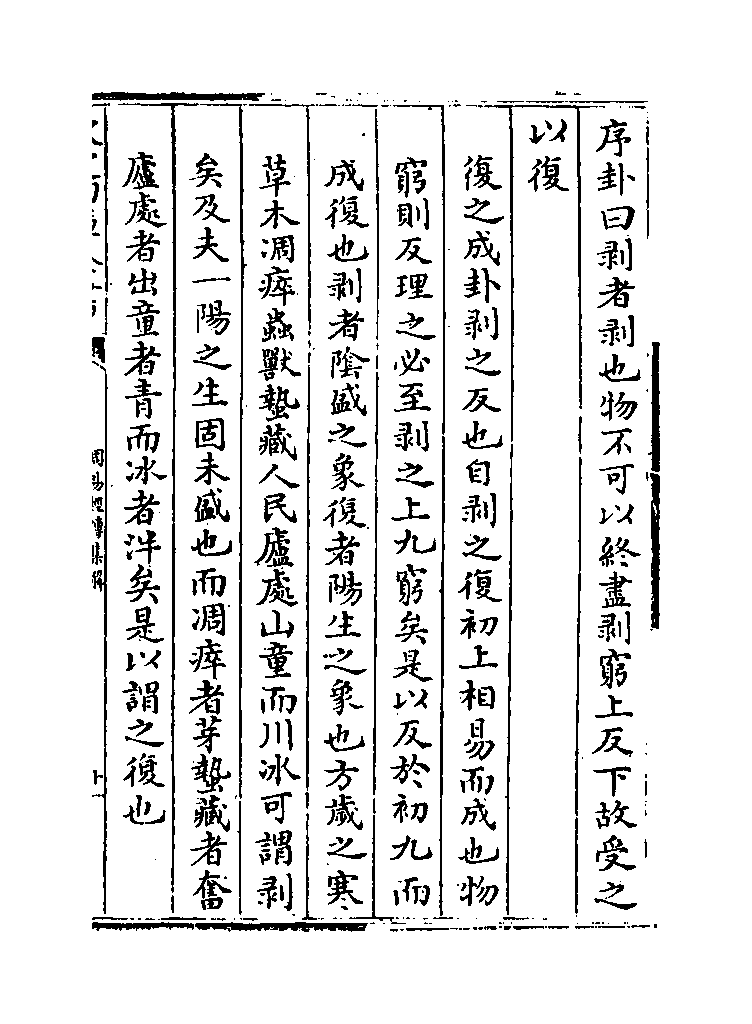 序卦曰剥者剥也物不可以終盡剥窮上反下故受之
以復
復之成卦剥之反也自剥之復初上相易而成也物
窮則反理之必至剥之上九窮矣是以反於初九而
成復也剥者陰盛之象復者陽生之象也方歲之寒
草木凋瘁蟲獸蟄藏人民廬處山童而川冰可謂剥
矣及夫一陽之生固未盛也而凋瘁者芽蟄藏者奮
廬處者出童者青而冰者泮矣是以謂之復也